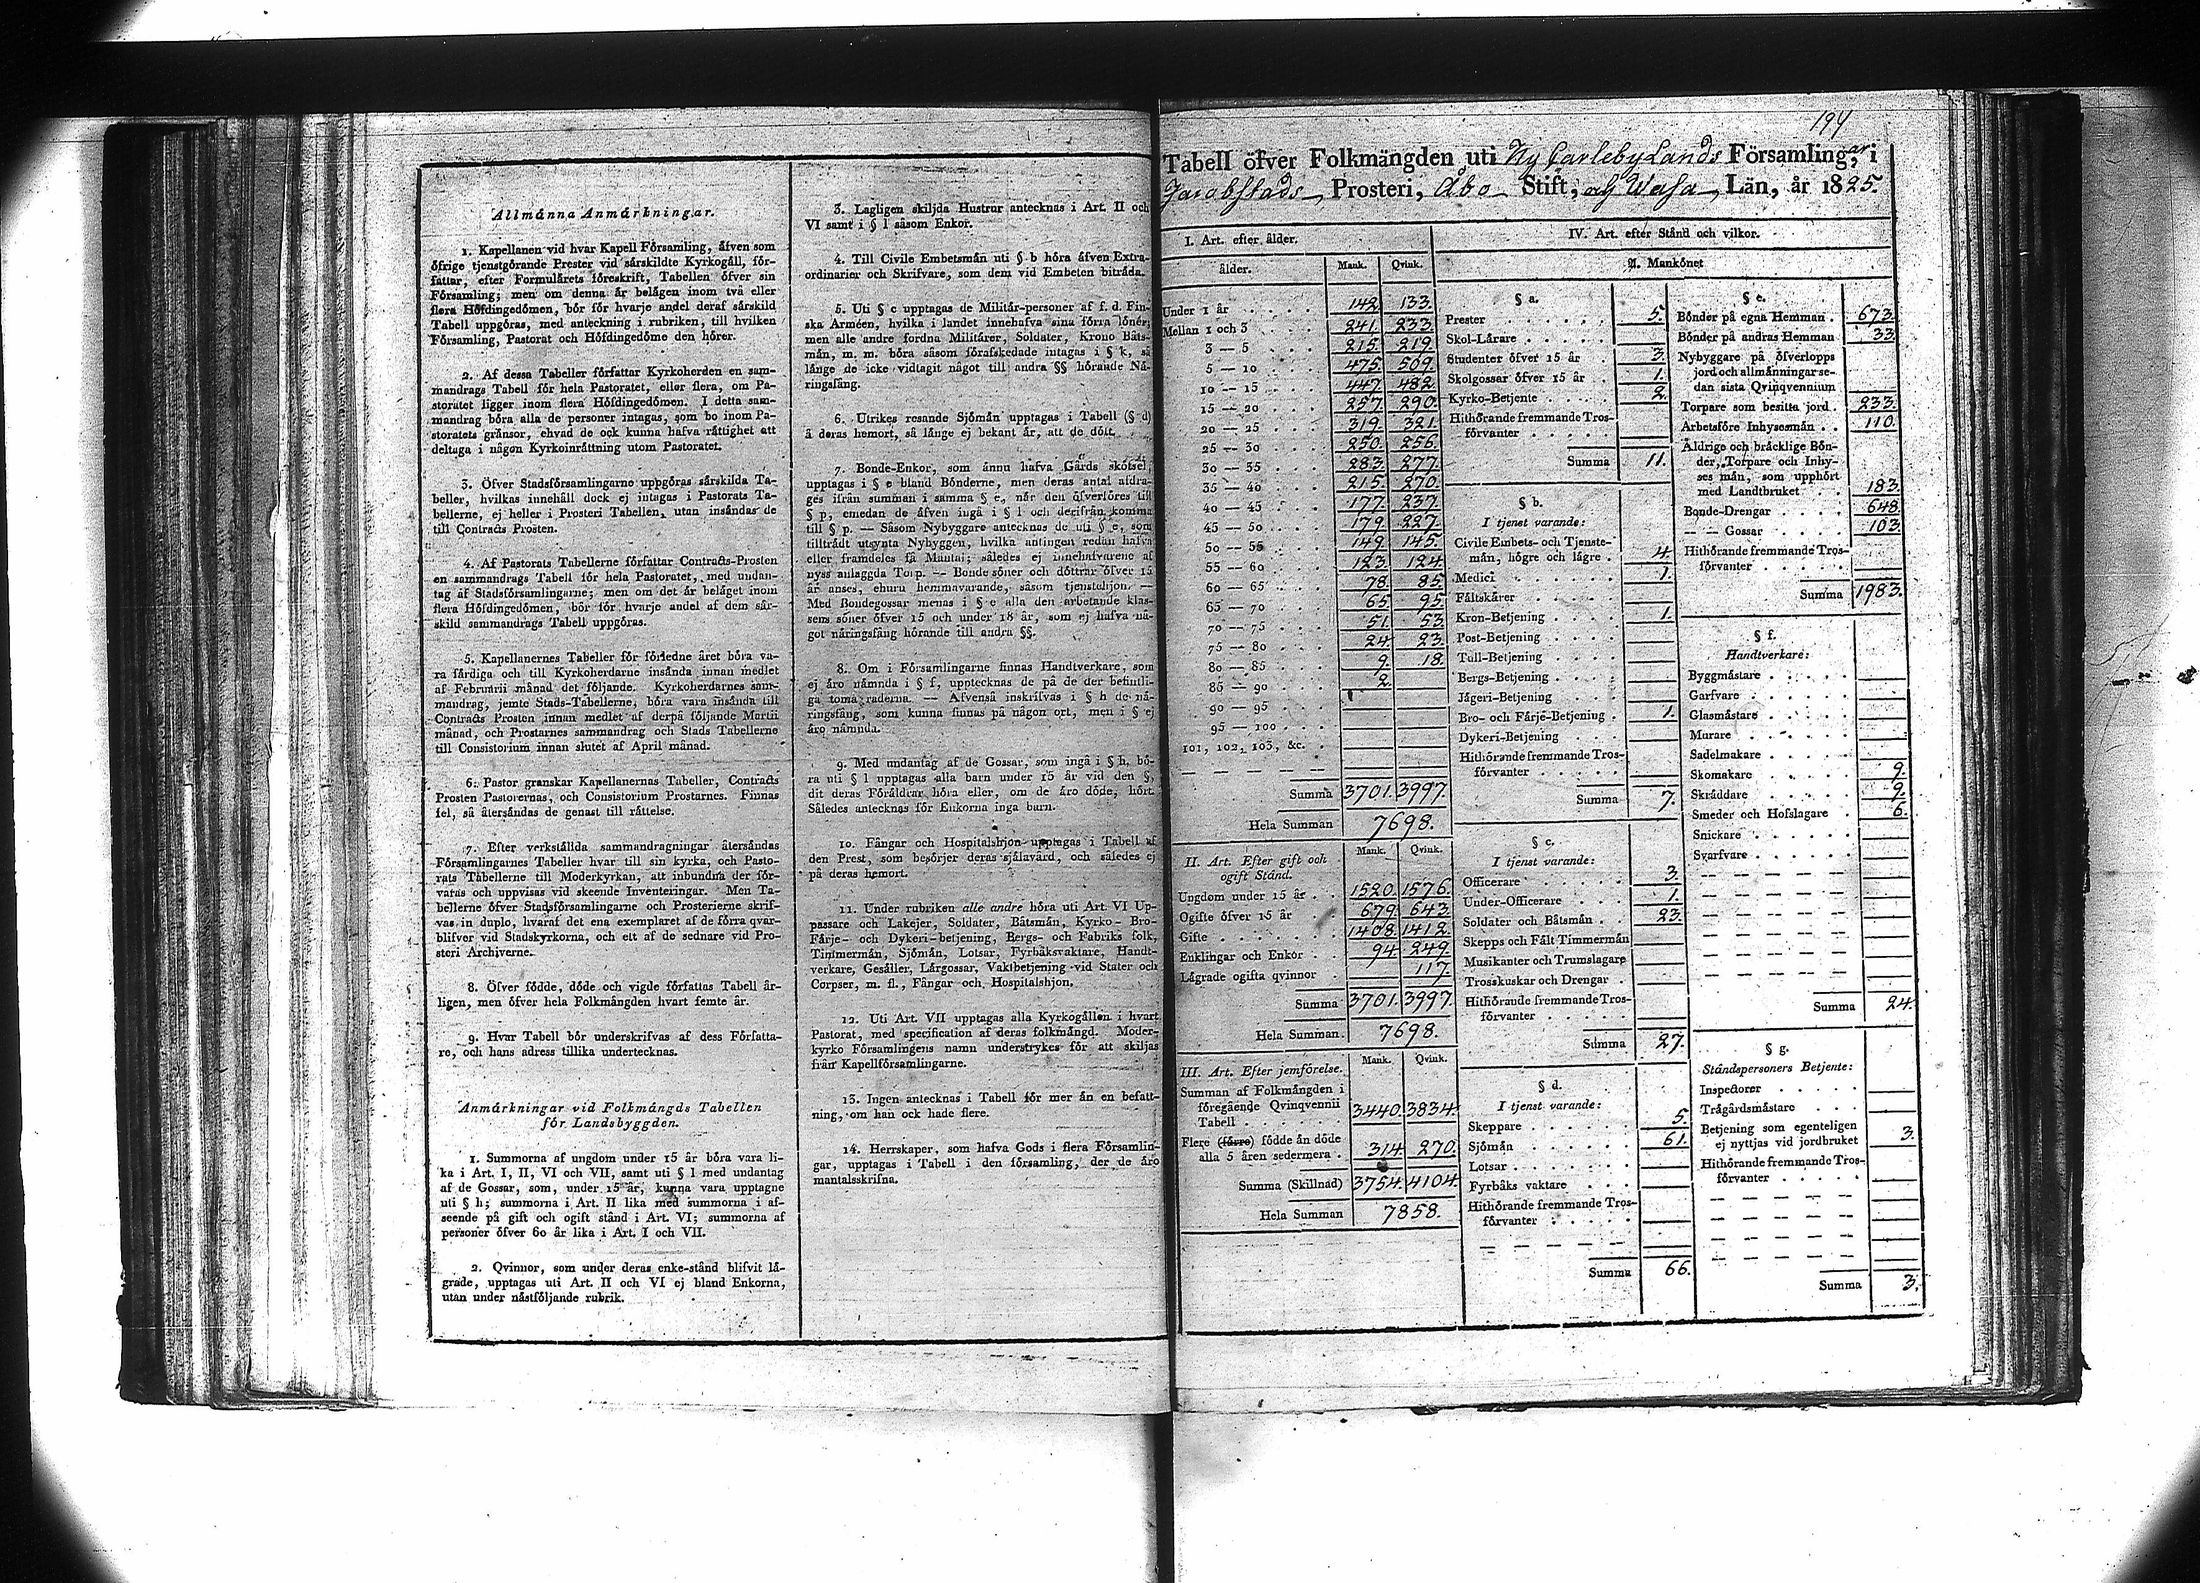 Allmänna Anmärkningar.
1. Kapellanen vid hvar Kapell Församling, äfven som
öfrige tjenstgörande Prester vid särskildte Kyrkogäll, för-
fattar, efter Formulärets föreskrift, Tabellen öfver sin
Församling; men om denna är belägen inom två eller
flera Höfdingedömen, bör för hvarje andel deraf särskild
Tabell uppgöras, med anteckning i rubriken, till hvilken
Församling, Pastorat och Höfdingedöme den hörer.
2. Af dessa Tabeller författar Kyrkoherden en sam-
mandrags Tabell för hela Pastoratet, eller flera, om Pa-
storatet ligger inom flera Höfdingedömen. I detta sam-
mandrag böra alla de personer intagas, som bo inom Pa-
storatets gränsor, ehvad de ock kunna hafva rättighet att
deltaga i någon Kyrkoinrättning utom Pastoratet.
3. Öfver Stadsförsamlingarne uppgöras särskilda Ta-
beller, hvilkas innehåll dock ej intagas i Pastorats Ta-
bellerne, ej heller i Prosteri Tabellen, utan insändas de
till Contracts Prosten.
4. Af Pastorats Tabellerne författar Contracts-Prosten
en sammandrags Tabell för hela Pastoratet, med undan-
tag af Stadsförsamlingarne; men om det är beläget inom
flera Höfdingedömen, bör för hvarje andel af dem sär-
skild sammandrags Tabell uppgöras.
5. Kapellanernes Tabeller för förledne året böra va-
ra färdiga och till Kyrkoherdarne insända innan medlet
af Februarii månad det följande. Kyrkoherdarnes sam-
mandrag, jemte Stads-Tabellerne, böra vara insända till
Contracts Prosten innan medlet af derpå följande Martii
månad, och Prostarnes sammandrag och Stads Tabellerne
till Consistorium innan slutet af April månad.
6. Pastor granskar Kapellanernas Tabeller, Contracts
Prosten Pastorernas, och Consistorium Prostarnes. Finnas
fel, så återsändas de genast till rättelse.
7. Efter verkställda sammandragningar återsändas
Församlingarnes Tabeller hvar till sin kyrka, och Pasto-
rats Tabellerne till Moderkyrkan, att inbundna der för-
varas och uppvisas vid skeende Inventeringar. Men Ta-
bellerne öfver Stadsförsamlingarne och Prosterierne skrif-
vas in duplo, hvaraf det ena exemplaret af de förra qvar-
blifver vid Stadskyrkorna, och ett af de sednare vid Pro-
steri Archiverne.
8. Öfver födde, döde och vigde författas Tabell år-
ligen, men öfver hela Folkmängden hvart femte år.
9. Hvar Tabell bör underskrifvas af dess Författa-
re, och hans adress tillika undertecknas.
Anmärkningar vid Folkmängds Tabellen
för Landsbyggden.
1. Summorna af ungdom under 15 år böra vara li-
ka i Art. I, II, VI och VII, samt uti § l med undantag
af de Gossar, som, under 15 år, kunna vara upptagne
uti § h; summorna i Art. II lika med summorna i af-
seende på gift och ogift stånd i Art. VI; summorna af
personer öfver 60 år lika i Art. I och VII.
2. Qvinnor, som under deras enke-stånd blifvit lä-
grade, upptagas uti Art. II och VI ej bland Enkorna,
utan under nästföljande rubrik.
3. Lagligen skiljda Hustrur antecknas i Art. II och
VI samt i § l såsom Enkor.
4. Till Civile Embetsmän uti § b höra äfven Extra-
ordinarier och Skrifvare, som dem vid Embeten biträda.
5. Uti § c upptagas de Militär-personer af f. d. Fin-
ska Arméen, hvilka i landet innehafva sina förra löner;
men alle andre fordna Militärer, Soldater, Krono Båts-
män, m. m. böra såsom förafskedade intagas i § k, så
länge de icke vidtagit något till andra §§ hörande Nä-
ringsfång.
6. Utrikes resande Sjömän upptagas i Tabell (§ d)
å deras hemort, så länge ej bekant är, att de dött.
7. Bonde-Enkor, som ännu hafva Gårds skötsel,
upptagas i § e bland Bönderne, men deras antal afdra-
ges ifrån summan i samma § e, när den öfverföres till
§ p, emedan de äfven ingå i § l och derifrån komma
till § p. — Såsom Nybyggare antecknas de uti § e, som
tillträdt utsynta Nybyggen, hvilka antingen redan hafva
eller framdeles få Mantal; således ej innehafvarene af
nyss anlaggda Torp. — Bonde söner och döttrar öfver 15
år anses, ehuru hemmavarande, såsom tjenstehjon. —
Med Bondegossar menas i § e alla den arbetande klas-
sens söner öfver 15 och under 18 år, som ej hafva nå-
got näringsfång hörande till andra §§.
8. Om i Församlingarne finnas Handtverkare, som
ej äro nämnda i § f, upptecknas de på de der befintli-
ga toma raderna. — Äfvenså inskrifvas i § h de nä-
ringsfång, som kunna finnas på någon ort, men i § ej
äro nämnda.
9. Med undantag af de Gossar, som ingå i § h, bö-
ra uti § l upptagas alla barn under 15 år vid den §,
dit deras Föräldrar höra eller, om de äro döde, hört.
Således antecknas för Enkorna inga barn.
10. Fångar och Hospitalshjon upptagas i Tabell af
den Prest, som besörjer deras själavård, och således ej
på deras hemort.
11. Under rubriken alle andre höra uti Art. VI Up-
passare och Lakejer, Soldater, Båtsmän, Kyrko- Bro-
Färje- och Dykeri-betjening, Bergs- och Fabriks folk,
Timmermän, Sjömän, Lotsar, Fyrbåksvaktare, Handt-
verkare, Gesäller, Lärgossar, Vaktbetjening vid Stater och
Corpser, m. fl., Fångar och Hospitalshjon.
12. Uti Art. VII upptagas alla Kyrkogällen i hvart
Pastorat, med specification af deras folkmängd. Moder-
kyrko Församlingens namn understrykes för att skiljas
från Kapellförsamlingarne.
13. Ingen antecknas i Tabell för mer än en befatt-
ning, om han ock hade flere.
14. Herrskaper, som hafva Gods i flera Församlin-
gar, upptagas i Tabell i den församling, der de äro
mantalsskrifna.
194
Tabell öfver Folkmängden uti Ny Carleby Lands Församlingar, i
Jacobstads Prosteri, Åbo Stift, af Wasa Län, år 1825.
I. Art. efter ålder.
ålder. Mank. Qvink.
Under 1 år 142. 133.
Mellan 1 och 3 241. 233.
3 — 5 215. 219.
5 — 10 475. 509.
10 — 15 447. 482.
15 — 20 257. 290.
20 — 25 319. 321.
25 — 30 250. 256.
30 — 35 283. 277.
35 — 40 215. 270.
40 — 45 177. 237.
45 — 50 179. 227.
50 — 55 149. 145.
55 — 60 123. 124.
60 — 65 78. 85.
65 — 70 65. 95.
70 — 75 51. 53.
75 — 80 24. 23.
80 — 85 9. 18.
85 — 90 2.
90 — 95
95 — 100
101, 102, 103, &c.
Summa 3701. 3997.
Hela Summan 7698.
II. Art. Efter gift och ogift Stånd. Mank. Qvink.
Ungdom under 15 år 1520. 1576.
Ogifte öfver 15 år 679. 643.
Gifte 1408. 1412.
Enklingar och Enkor 94. 249.
Lägrade ogifta qvinnor 117.
Summa 3701. 3997.
Hela Summan 7698.
III. Art. Efter jemförelse. Mank. Qvink.
Summan af Folkmängden i
föregående Qvinqvennii
Tabell 3440. 3834.
Flere (färre) födde än döde
alla 5 åren sedermera 314. 270.
Summa (Skillnad) 3754. 4104.
Hela Summan 7858.
IV. Art. efter Stånd och vilkor.
A. Mankönet
§ a.
Prester 5.
Skol-Lärare
Studenter öfver 15 år 3.
Skolgossar öfver 15 år 1.
Kyrko-Betjente 2.
Hithörande fremmande Tros-
förvanter
Summa 11.
§ b.
I tjenst varande:
Civile Embets- och Tjenste-
män, högre och lägre 4.
Medici 1.
Fältskärer
Kron-Betjening 1.
Post-Betjening
Tull-Betjening
Bergs-Betjening
Jägeri-Betjening
Bro- och Färje-Betjening 1.
Dykeri-Betjening
Hithörande fremmande Tros-
förvanter
Summa 7.
§ c.
I tjenst varande:
Officerare 3.
Under-Officerare 1.
Soldater och Båtsmän 23.
Skepps och Fält Timmermän
Musikanter och Trumslagare
Trosskuskar och Drengar
Hithörande fremmande Tros-
förvanter
Summa 27.
§ d.
I tjenst varande:
Skeppare 5.
Sjömän 61.
Lotsar
Fyrbåks vaktare
Hithörande fremmande Tros-
förvanter
Summa 66.
§ e.
Bönder på egna Hemman 673.
Bönder på andras Hemman 33.
Nybyggare på öfverlopps
jord och allmänningar se-
dan sista Qvinqvennium
Torpare som besitta jord 233.
Arbetsföre Inhysesmän 110.
Åldrige och bräcklige Bön-
der, Torpare och Inhy-
ses män, som upphört
med Landtbruket 183.
Bonde-Drengar 648.
— — Gossar 103.
Hithörande fremmande Tros-
förvanter
Summa 1983.
§ f.
Handtverkare:
Byggmästare
Garfvare
Glasmästare
Murare
Sadelmakare
Skomakare 9.
Skräddare 9.
Smeder och Hofslagare 6.
Snickare
Svarfvare
Summa 24.
§ g.
Ståndspersoners Betjente:
Inspectorer
Trägårdsmästare
Betjening som egenteligen
ej nyttjas vid jordbruket 3.
Hithörande fremmande Tros-
förvanter
Summa 3.